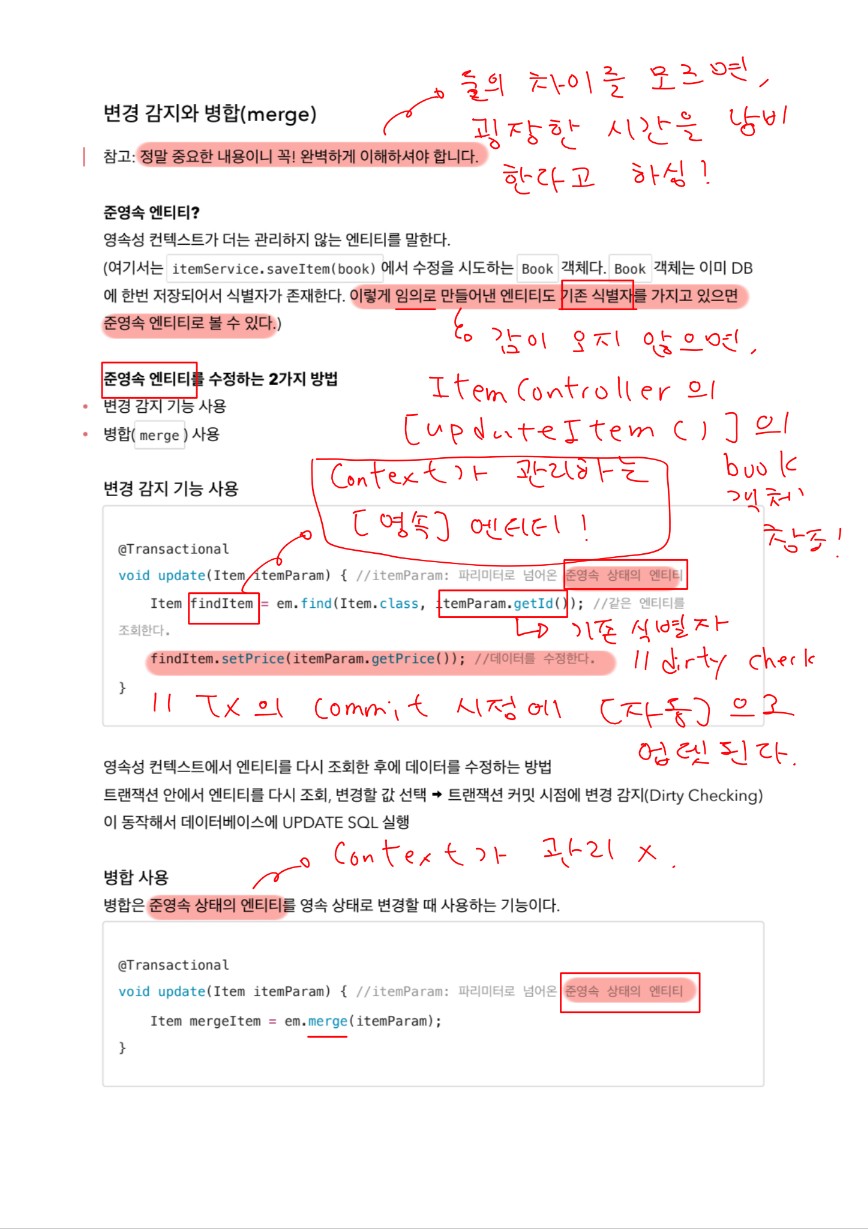 둘의 차이를 모르면,
굉장한 시간을 낭비
한다고 하심!
변경 감지와 병합(merge)
참고: 정말 중요한 내용이니 꼭! 완벽하게 이해하셔야 합니다.
준영속 엔티티?
영속성 컨텍스트가 더는 관리하지 않는 엔티티를 말한다.
(여기서는 itemService.saveItem(book) 에서 수정을 시도하는 Book 객체다. Book 객체는 이미 DB
에 한번 저장되어서 식별자가 존재한다. 이렇게 임의로 만들어낸 엔티티도 기존 식별자를 가지고 있으면
준영속 엔티티로 볼 수 있다.)
감이 오지 않으면,
ItemController의
[updateItem()]의
book
객체
참조!
준영속 엔티티를 수정하는 2가지 방법
• 변경 감지 기능 사용
• 병합( merge ) 사용
Context가 관리하는
[영속] 엔티티!
변경 감지 기능 사용
@Transactional
void update(Item itemParam) { //itemParam: 파리미터로 넘어온 준영속 상태의 엔티티
Item findItem = em.find(Item.class, itemParam.getId()); //같은 엔티티를
조회한다.
기존 식별자
findItem.setPrice(itemParam.getPrice()); //데이터를 수정한다.
// dirty check
}
// Tx의 commit 시점에 [자동]으로
업뎃된다.
영속성 컨텍스트에서 엔티티를 다시 조회한 후에 데이터를 수정하는 방법
트랜잭션 안에서 엔티티를 다시 조회, 변경할 값 선택 ➡ 트랜잭션 커밋 시점에 변경 감지(Dirty Checking)
이 동작해서 데이터베이스에 UPDATE SQL 실행
Context가 관리 x.
병합 사용
병합은 준영속 상태의 엔티티를 영속 상태로 변경할 때 사용하는 기능이다.
@Transactional
void update(Item itemParam) { //itemParam: 파리미터로 넘어온 준영속 상태의 엔티티
Item mergeItem = em.merge(itemParam);
}